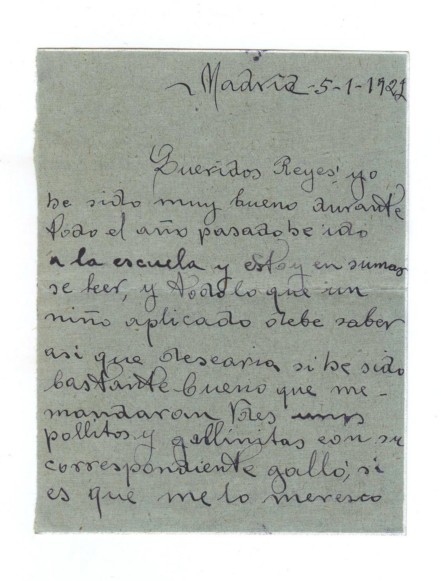 Madrid -5-1-1922
Queridos Reyes: yo
he sido muy bueno durante
todo el año pasado he ido
a la escuela y estoy en sumas
se leer, y todo lo que un
niño aplicado debe saber
asi que desearia si he sido
bastante bueno que me-
mandaran Vdes unos
pollitos y gallinitas con su
correspondiente gallo, si
es que me lo meresco